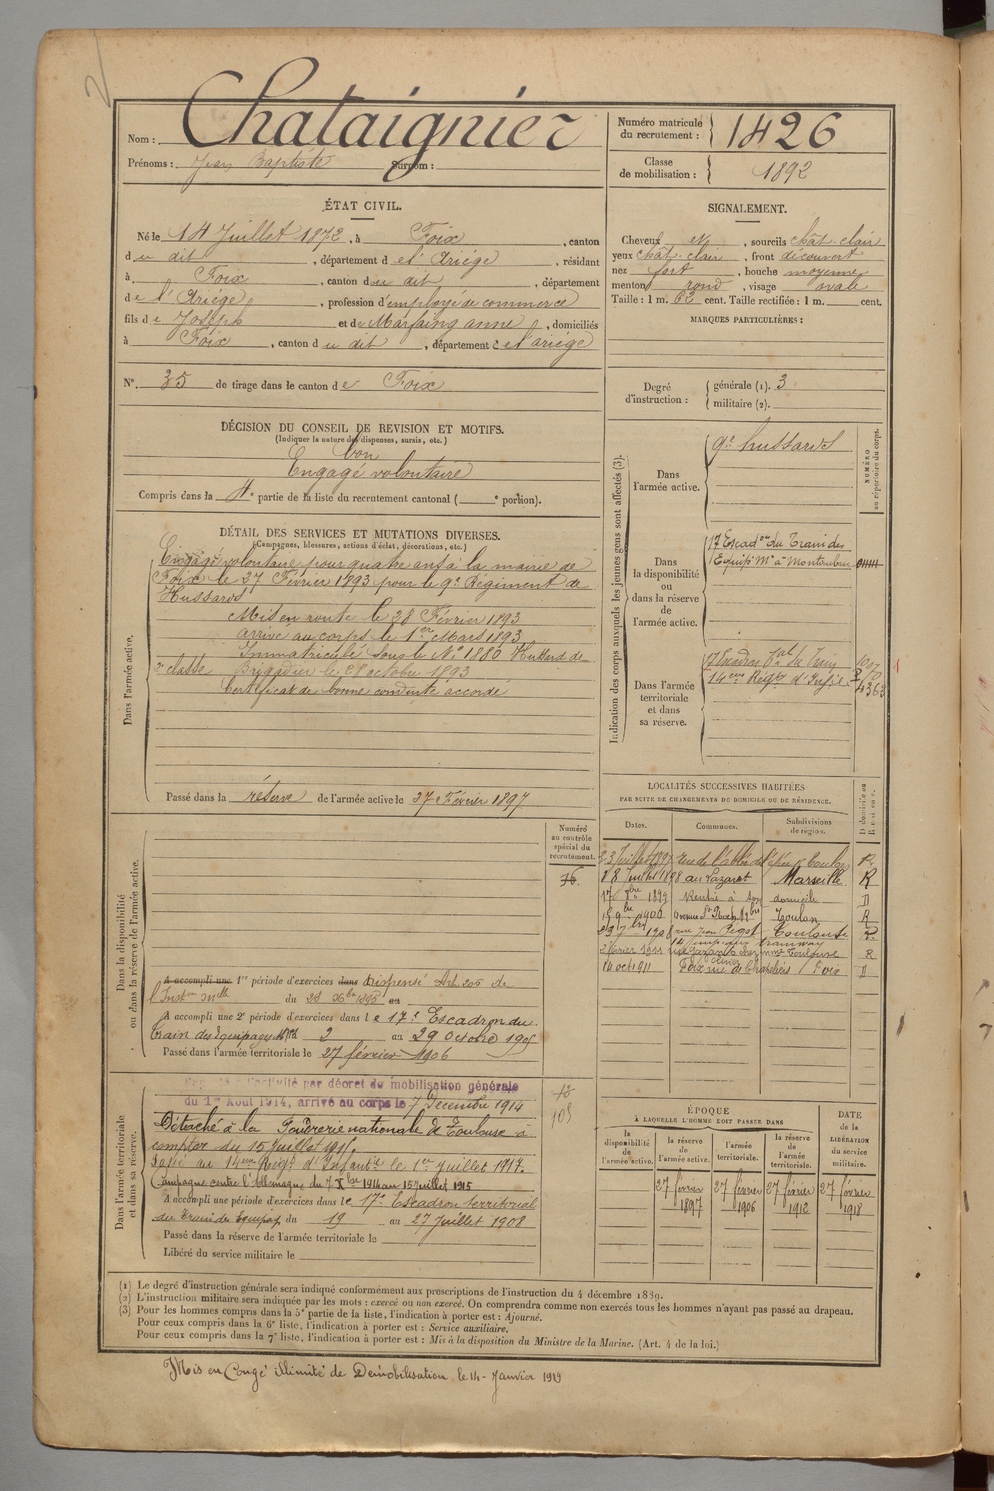 Nom : Chataignier
Prénoms : Jean Baptiste Surnom :
Numéro matricule du recrutement : 1426
Classe de mobilisation : 1892
ÉTAT CIVIL.
Né le 14 Juillet 1872, à Foix, canton
du dit, département de l'Ariège, résidant
à Foix, canton du dit, département
de l'Ariège, profession d'employé de commerce
fils de Joseph et de Marfaing anne, domiciliés
à Foix, canton du dit, département de l'ariège
N°. 35 de tirage dans le canton de Foix
DÉCISION DU CONSEIL DE REVISION ET MOTIFS.
(Indiquer la nature des dispenses, sursis, etc.)
bon
Engagé volontaire
Compris dans la 4e partie de la liste du recrutement cantonal ( e portion).
SIGNALEMENT.
Cheveux et, sourcils chât. clair
yeux chât. clair, front découvert
nez fort, bouche moyenne
menton rond, visage ovale
Taille : 1 m. 62 cent. Taille rectifiée : 1 m. cent.
MARQUES PARTICULIÈRES :
Degré d'instruction : générale (1). 3
militaire (2).
DÉTAIL DES SERVICES ET MUTATIONS DIVERSES.
(Campagnes, blessures, actions d'éclat, décorations, etc.)
Dans l'armée active.
Engagé volontaire pour quatre ans à la mairie de
Foix le 27 Février 1893 pour le 9e Régiment de
Hussards
Mis en route le 28 Février 1893
arrivé au corps le 1er Mars 1893
Immatriculé sous le No 1880 Hussard de
2e classe Brigadier le 28 octobre 1893
Certificat de bonne conduite accordé
Passé dans la réserve de l'armée active le 27 Février 1897
Indication des corps auxquels les jeunes gens sont affectés (3).
NUMÉRO au répertoire du corps.
Dans l'armée active.
9e hussards
Dans la disponibilité ou dans la réserve de l'armée active.
17 Escadon du Train des
Equip Mre à Montauban
Dans l'armée territoriale et dans sa réserve.
17 Escadron Tal du Train
14eme Régt d'Infie
Dans la disponibilité ou dans la réserve de l'armée active.
Numéro au contrôle spécial du recrutement.
76
A accompli une 1re période d'exercices dans dispensé Art. 205 de
l'Inston mlle du 28 Xbre 1895 au
A accompli une 2e période d'exercices dans le 17e Escadron du
train des Equipages du 2 au 29 Octobre 1905
Passé dans l'armée territoriale le 27 février 1906
LOCALITÉS SUCCESSIVES HABITÉES
PAR SUITE DE CHANGEMENTS DE DOMICILE OU DE RÉSIDENCE.
Dates. Communes. Subdivisions de région. D domicile ou R résidence.
23 Juillet 1897 rue de l'abbé de l'épée Toulon R
18 Juillet 1898 au Lazaret Marseille R
17 8bre 1899 Rentré à son domicile D
15 9bre 1900 avenue St Roch Toulon R
1908 rue Jean Pigot Toulouse R
2 Février 1911 Toulouse R
14 oct 1911 Foix rue de Chapeliers Foix D
Dans l'armée territoriale et dans sa réserve.
Rappelé à l'activité par décret de mobilisation générale
du 1er Août 1914, arrivé au corps le 7 Décembre 1914
Détaché à la Poudrerie nationale de Toulouse à
compter du 15 Juillet 1915.
Passé au 14eme Régt d'Infantie le 1er juillet 1917.
Campagne contre l'Allemagne du 7 Xbre 1914 au 15 Juillet 1915
A accompli une période d'exercices dans le 17e Escadron territorial
du Train des Equipag du 19 au 27 Juillet 1908
Passé dans la réserve de l'armée territoriale le
Libéré du service militaire le
ÉPOQUE
À LAQUELLE L'HOMME DOIT PASSER DANS
la disponibilité de l'armée active. la réserve de l'armée active. l'armée territoriale. la réserve de l'armée territoriale. DATE de la LIBÉRATION du service militaire.
27 février 1897 27 février 1906 27 février 1912 27 février 1918
(1) Le degré d'instruction générale sera indiqué conformément aux prescriptions de l'instruction du 4 décembre 1889.
(2) L'instruction militaire sera indiquée par les mots : exercé ou non exercé. On comprendra comme non exercés tous les hommes n'ayant pas passé au drapeau.
(3) Pour les hommes compris dans la 5e partie de la liste, l'indication à porter est : Ajourné.
Pour ceux compris dans la 6e liste, l'indication à porter est : Service auxiliaire.
Pour ceux compris dans la 7e liste, l'indication à porter est : Mis à la disposition du Ministre de la Marine. (Art. 4 de la loi.)
Mis en Congé illimité de Démobilisation le 14 Janvier 1919